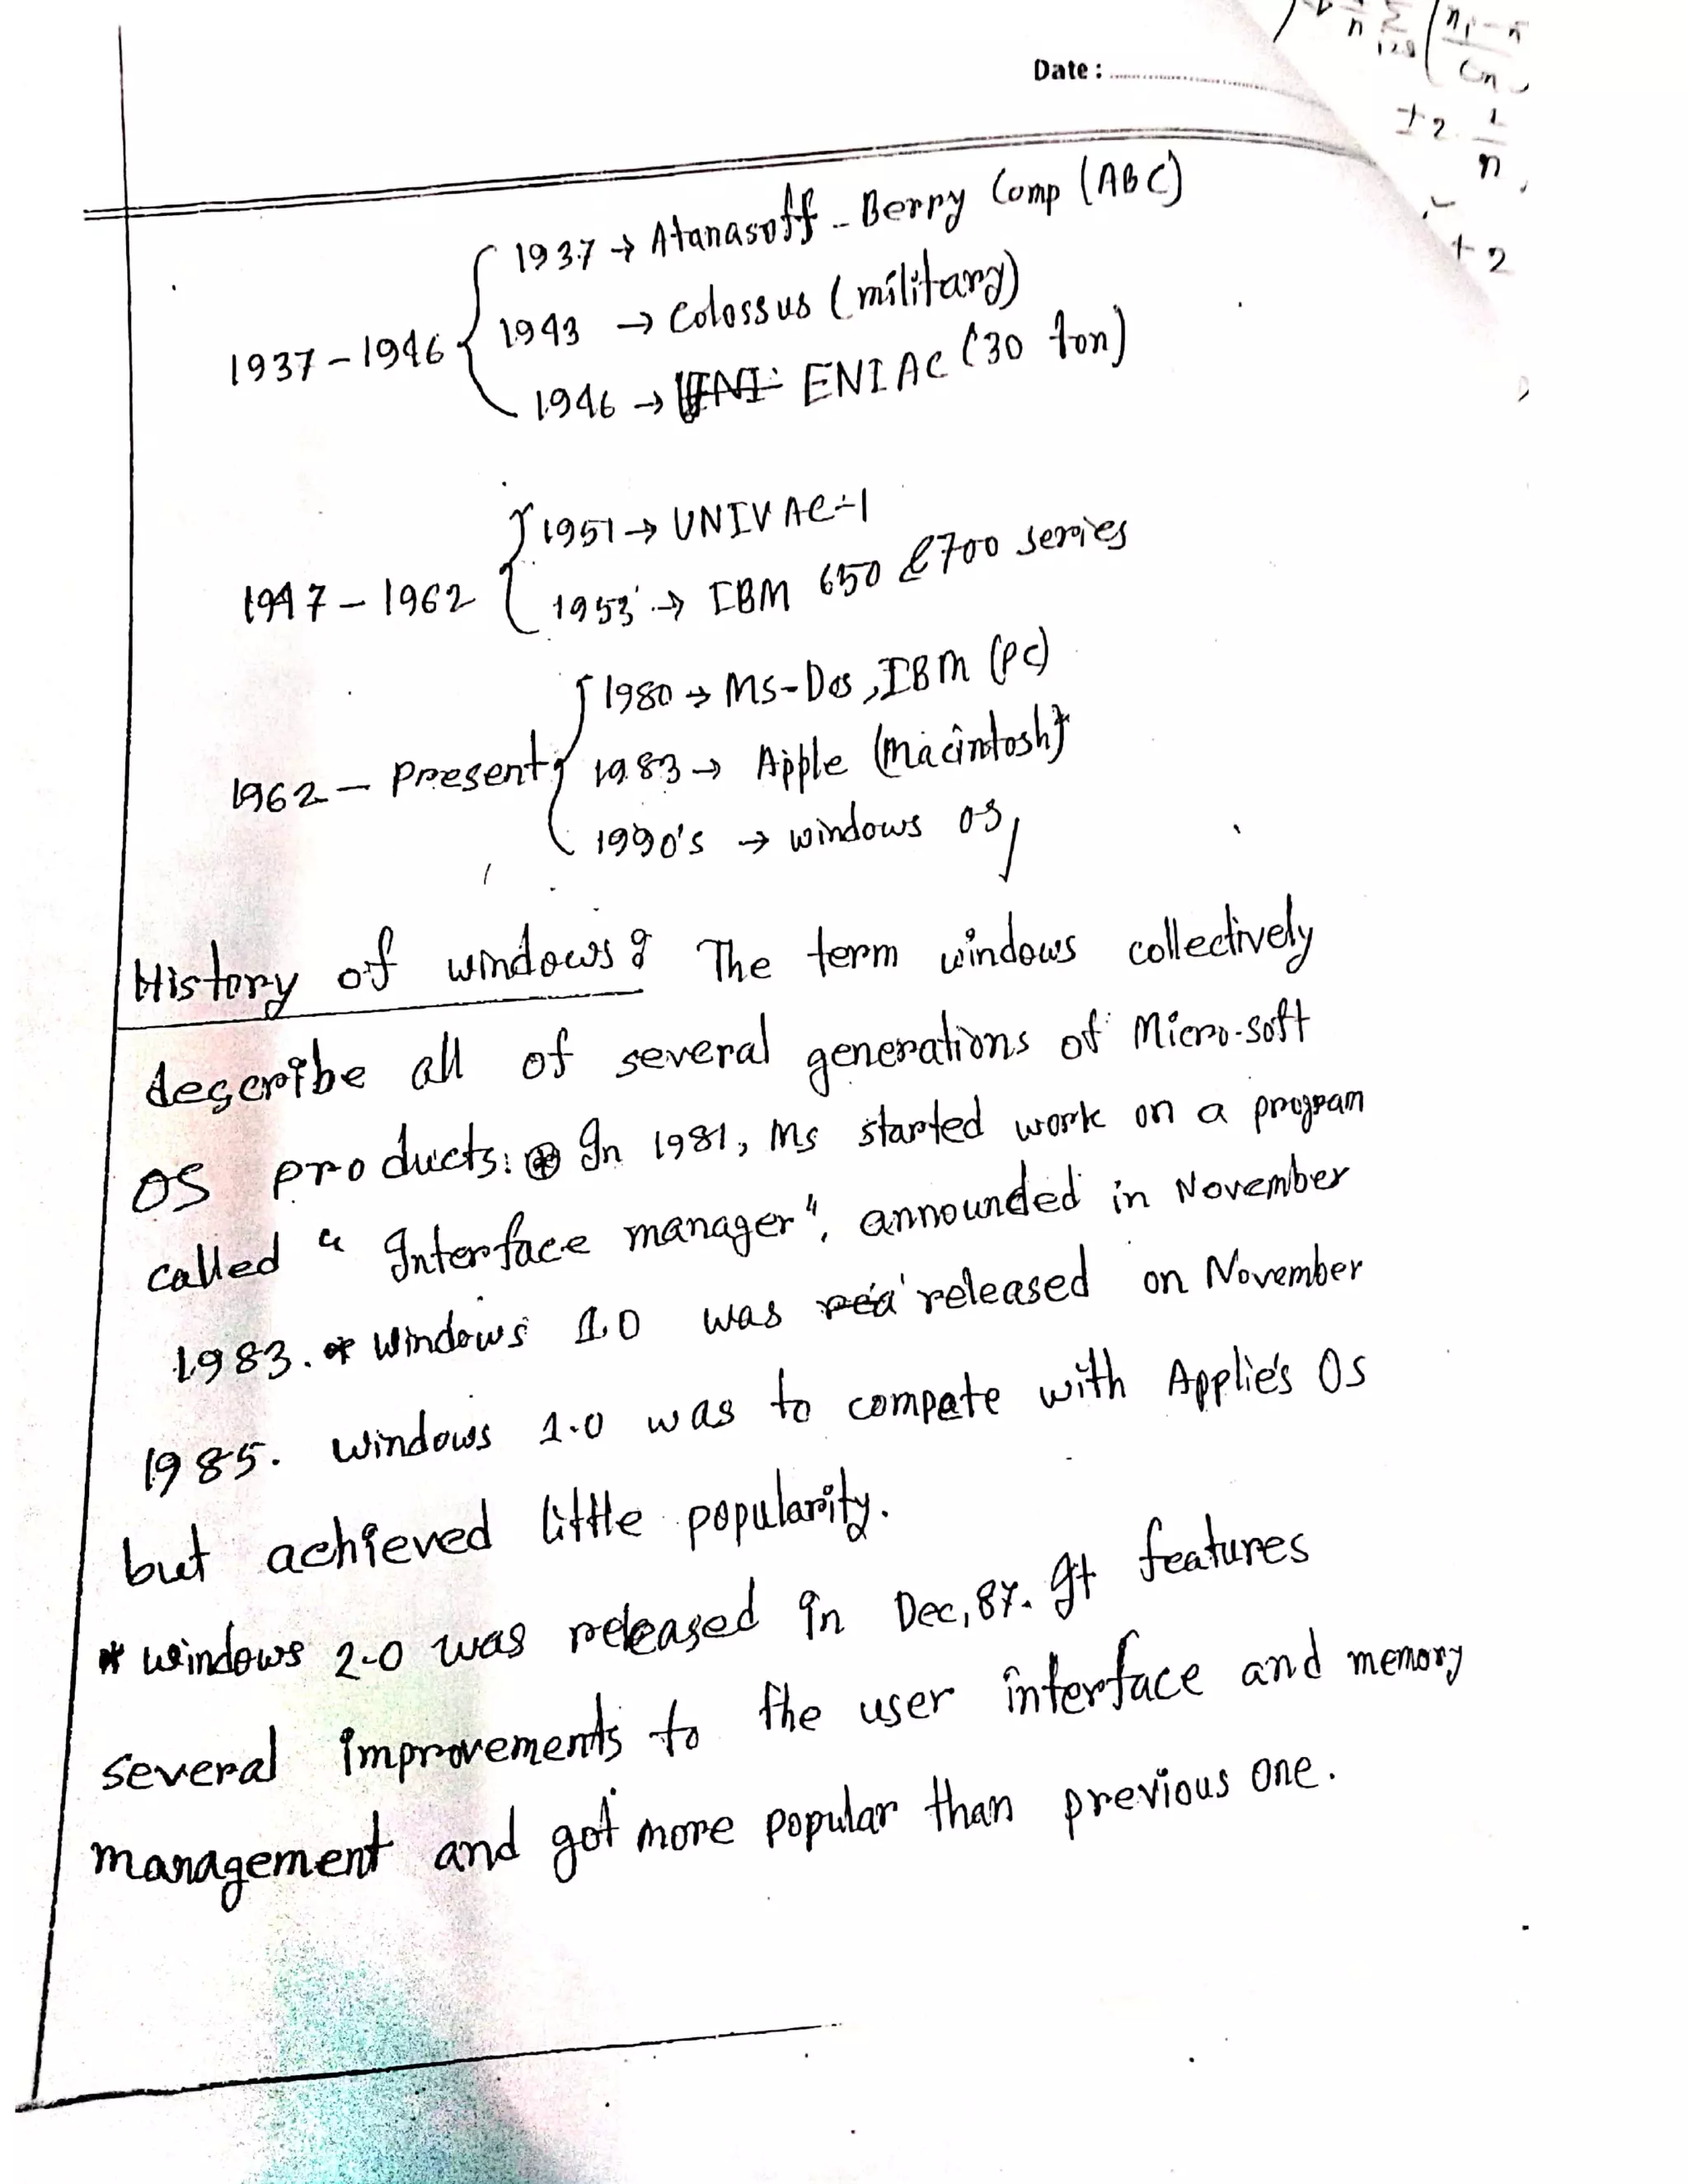 Date :
1937 → Atanasoff - Berry Comp (ABC)
1937 - 1946 { 1943 → Colossus (military)
1946 → ENIAC (30 ton)
1951 → UNIVAC-1
1947 - 1962 { 1953 → IBM 650 & 700 series
1980 → MS-Dos, IBM (PC)
1962 - Present { 1983 → Apple (Macintosh)
1990's → windows OS,
History of windows : The term windows collectively
describe all of several generations of Micro-soft
OS products. In 1981, Ms started work on a program
called " Interface manager", announded in November
1983. * Windows 1.0 was released on November
1985. Windows 1.0 was to compete with Applie's Os
but achieved little popularity.
* windows 2.0 was released in Dec, 87. It features
several improvements to the user interface and memory
management and got more popular than previous one.